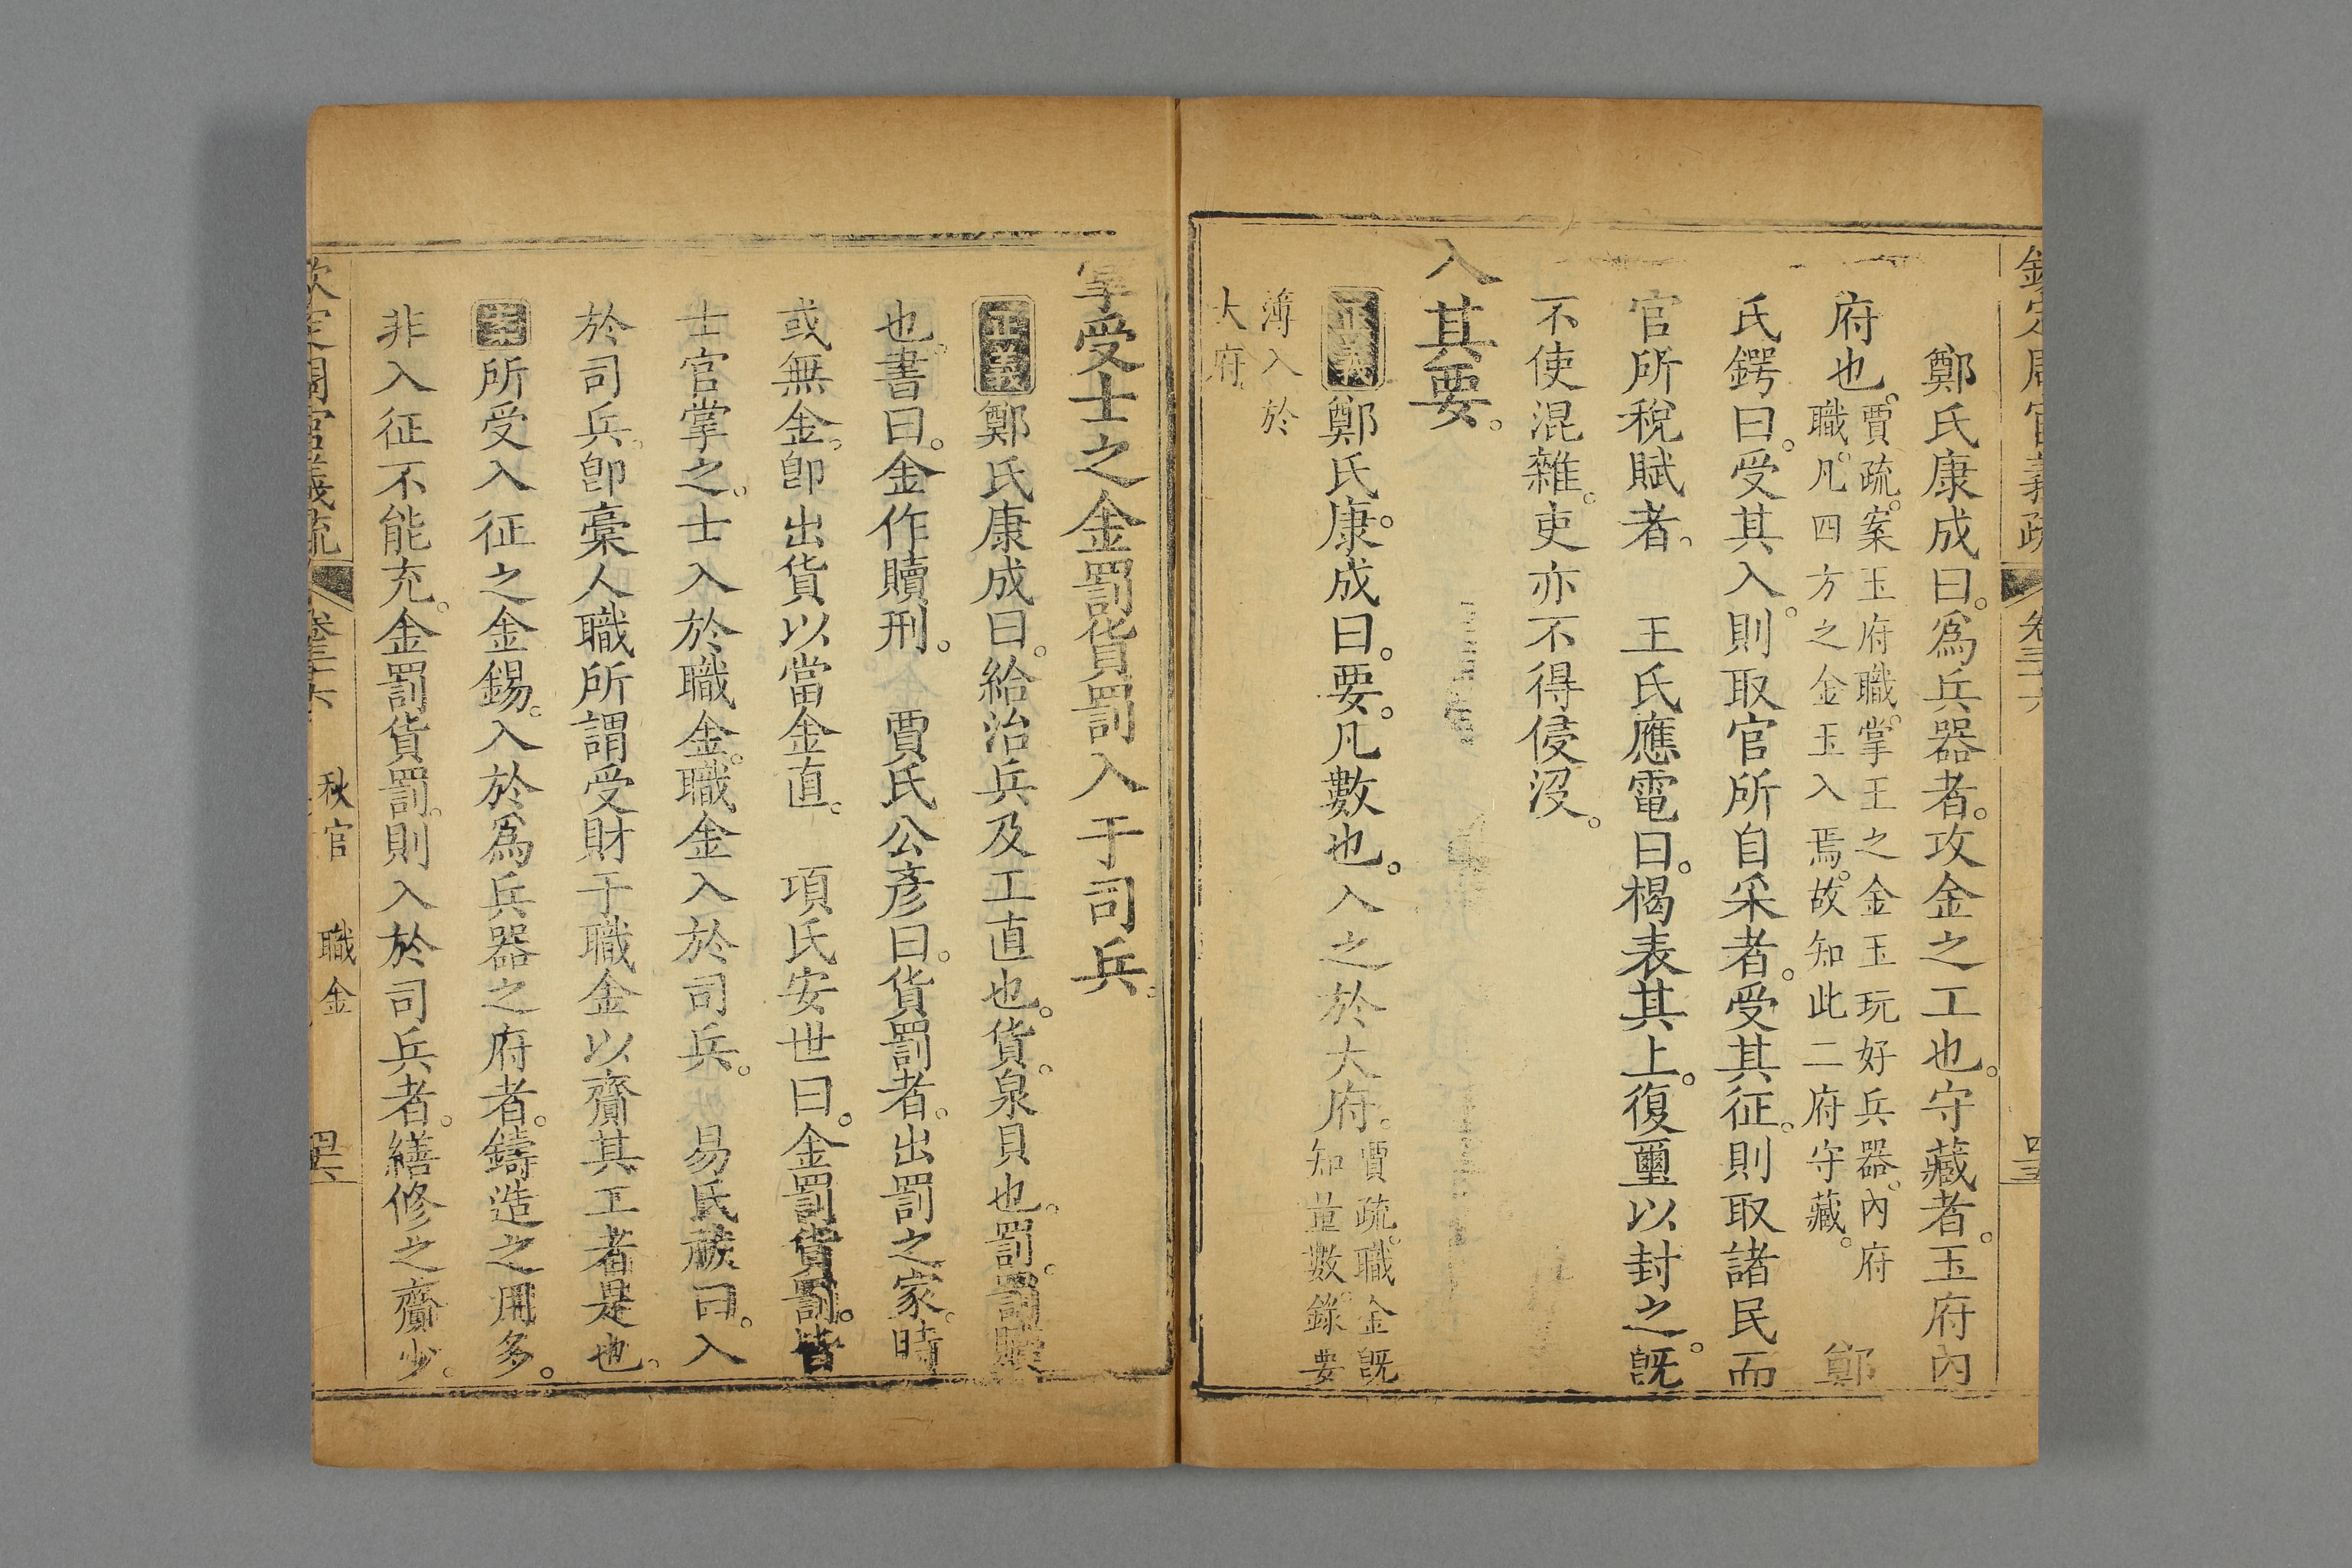 欽定周官義疏 卷三十六
鄭氏康成曰。爲兵器者。攻金之工也。守藏者。玉府內
府也。賈疏。案玉府職。掌王之金玉玩好兵器。內府
職。凡四方之金玉入焉。故知此二府守藏。 鄭
氏鍔曰。受其入。則取官所自采者。受其征。則取諸民而
官所稅賦者。 王氏應電曰。楬表其上。復璽以封之。旣
不使混雜。吏亦不得侵沒。
入其要。
正義鄭氏康成曰。要。凡數也。入之於大府。賈疏。職金旣
知量數。錄要
簿入於
大府。
掌受士之金罰貨罰入于司兵。
正義鄭氏康成曰。給治兵及工直也。貨。泉貝也。罰。罰贖
也。書曰。金作贖刑。 賈氏公彥曰。貨罰者。出罰之家。時
或無金。卽出貨以當金直。 項氏安世曰。金罰貨罰。皆
士官掌之。士入於職金。職金入於司兵。 易氏祓曰。入
於司兵。卽槀人職所謂受財于職金以齎其工者是也。
案所受入征之金錫。入於爲兵器之府者。鑄造之用多。
非入征不能充。金罰貨罰。則入於司兵者。繕修之齎少。
欽定周官義疏 卷三十六 秋官 職金